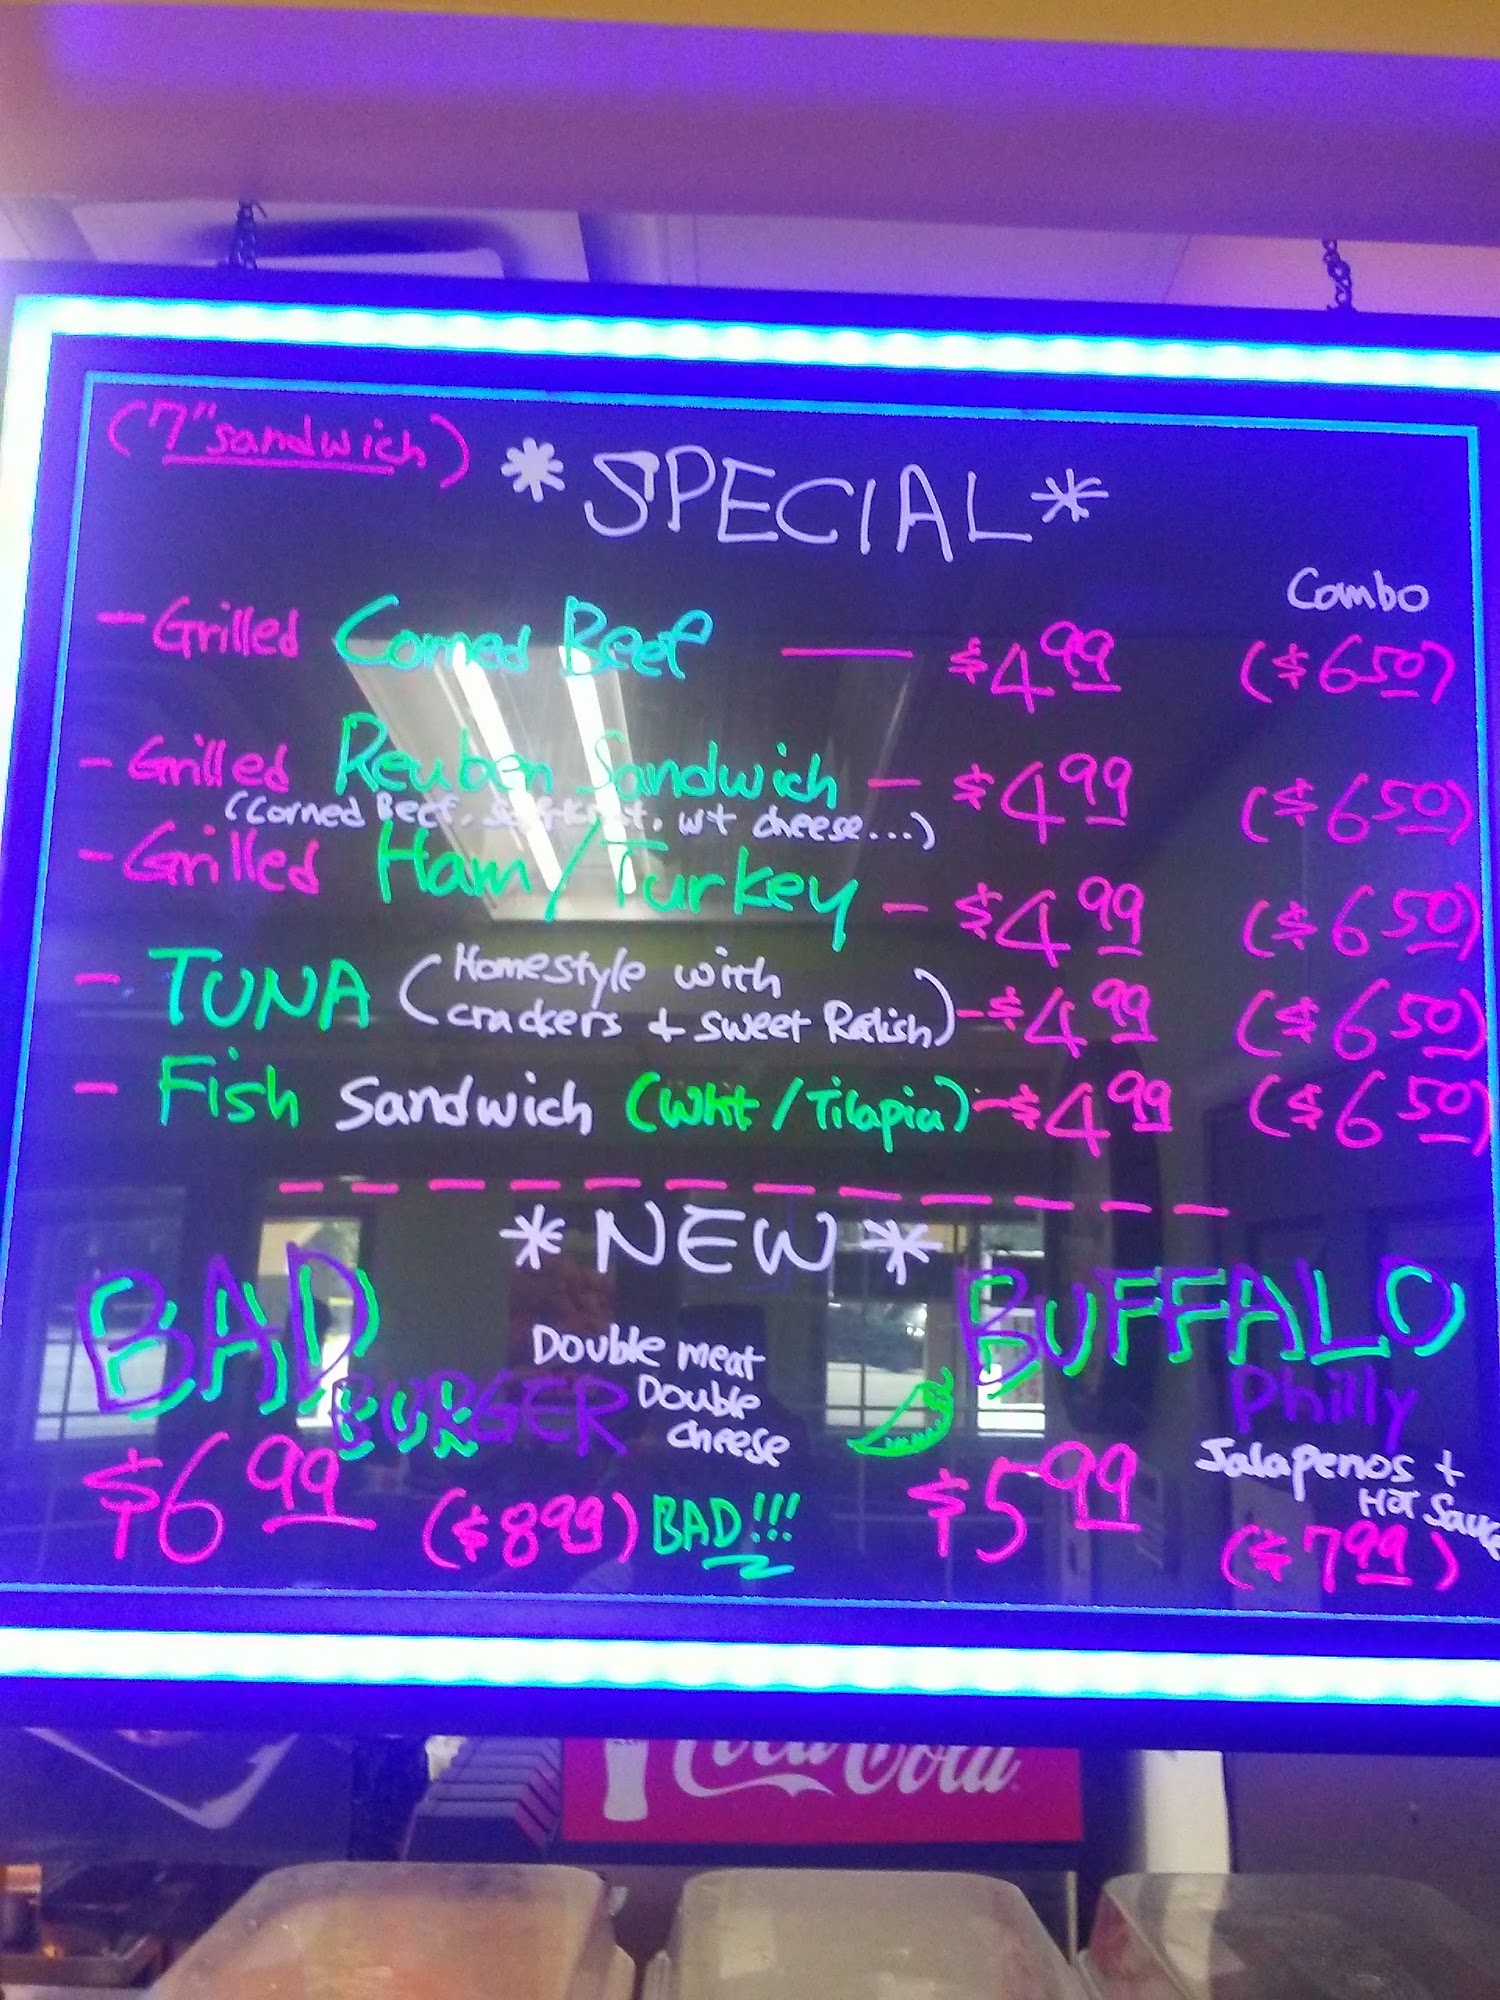 (7" sandwich)
*SPECIAL*
Combo
- Grilled Corned Beef — $4.99 ($6.50)
- Grilled Reuben Sandwich - $4.99 ($6.50)
(Corned Beef, wt cheese...)
- Grilled Ham/Turkey - $4.99 ($6.50)
- TUNA (Homestyle with crackers + sweet Relish) - $4.99 ($6.50)
- Fish Sandwich (Wht/Tilapia) - $4.99 ($6.50)
*NEW*
BAD BURGER
Double meat
Double
cheese
$6.99 ($8.99) BAD!!!
BUFFALO
Philly
Jalapenos +
Hot Sauce
$5.99 ($7.99)
Coca Cola